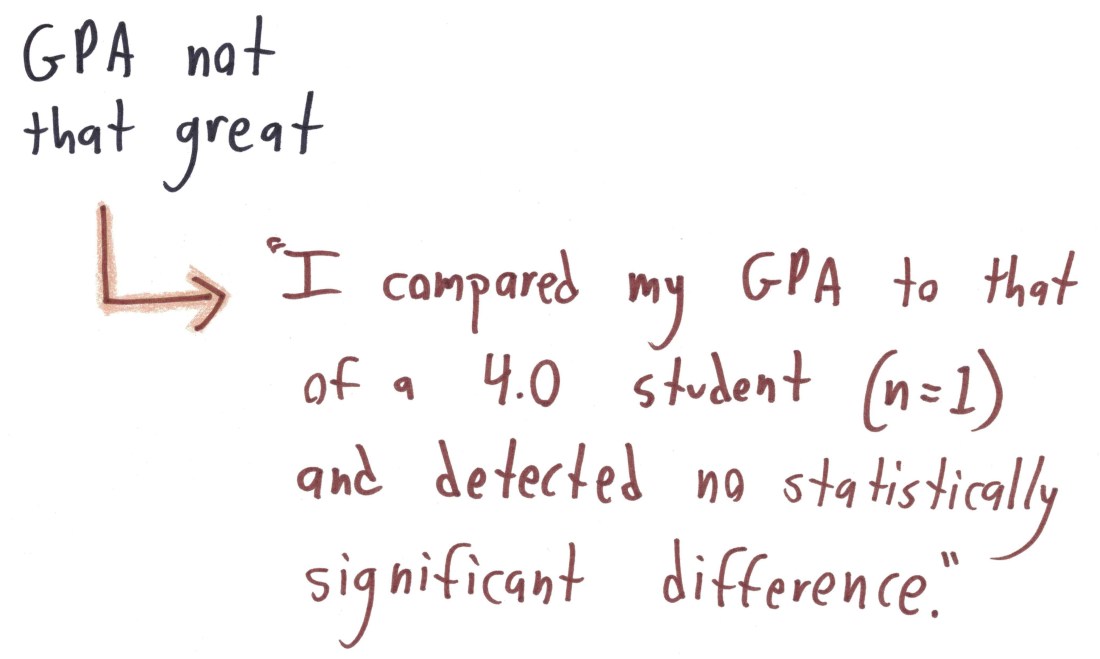 GPA not
that great
"I compared my GPA to that
of a 4.0 student (n=1)
and detected no statistically
significant difference."